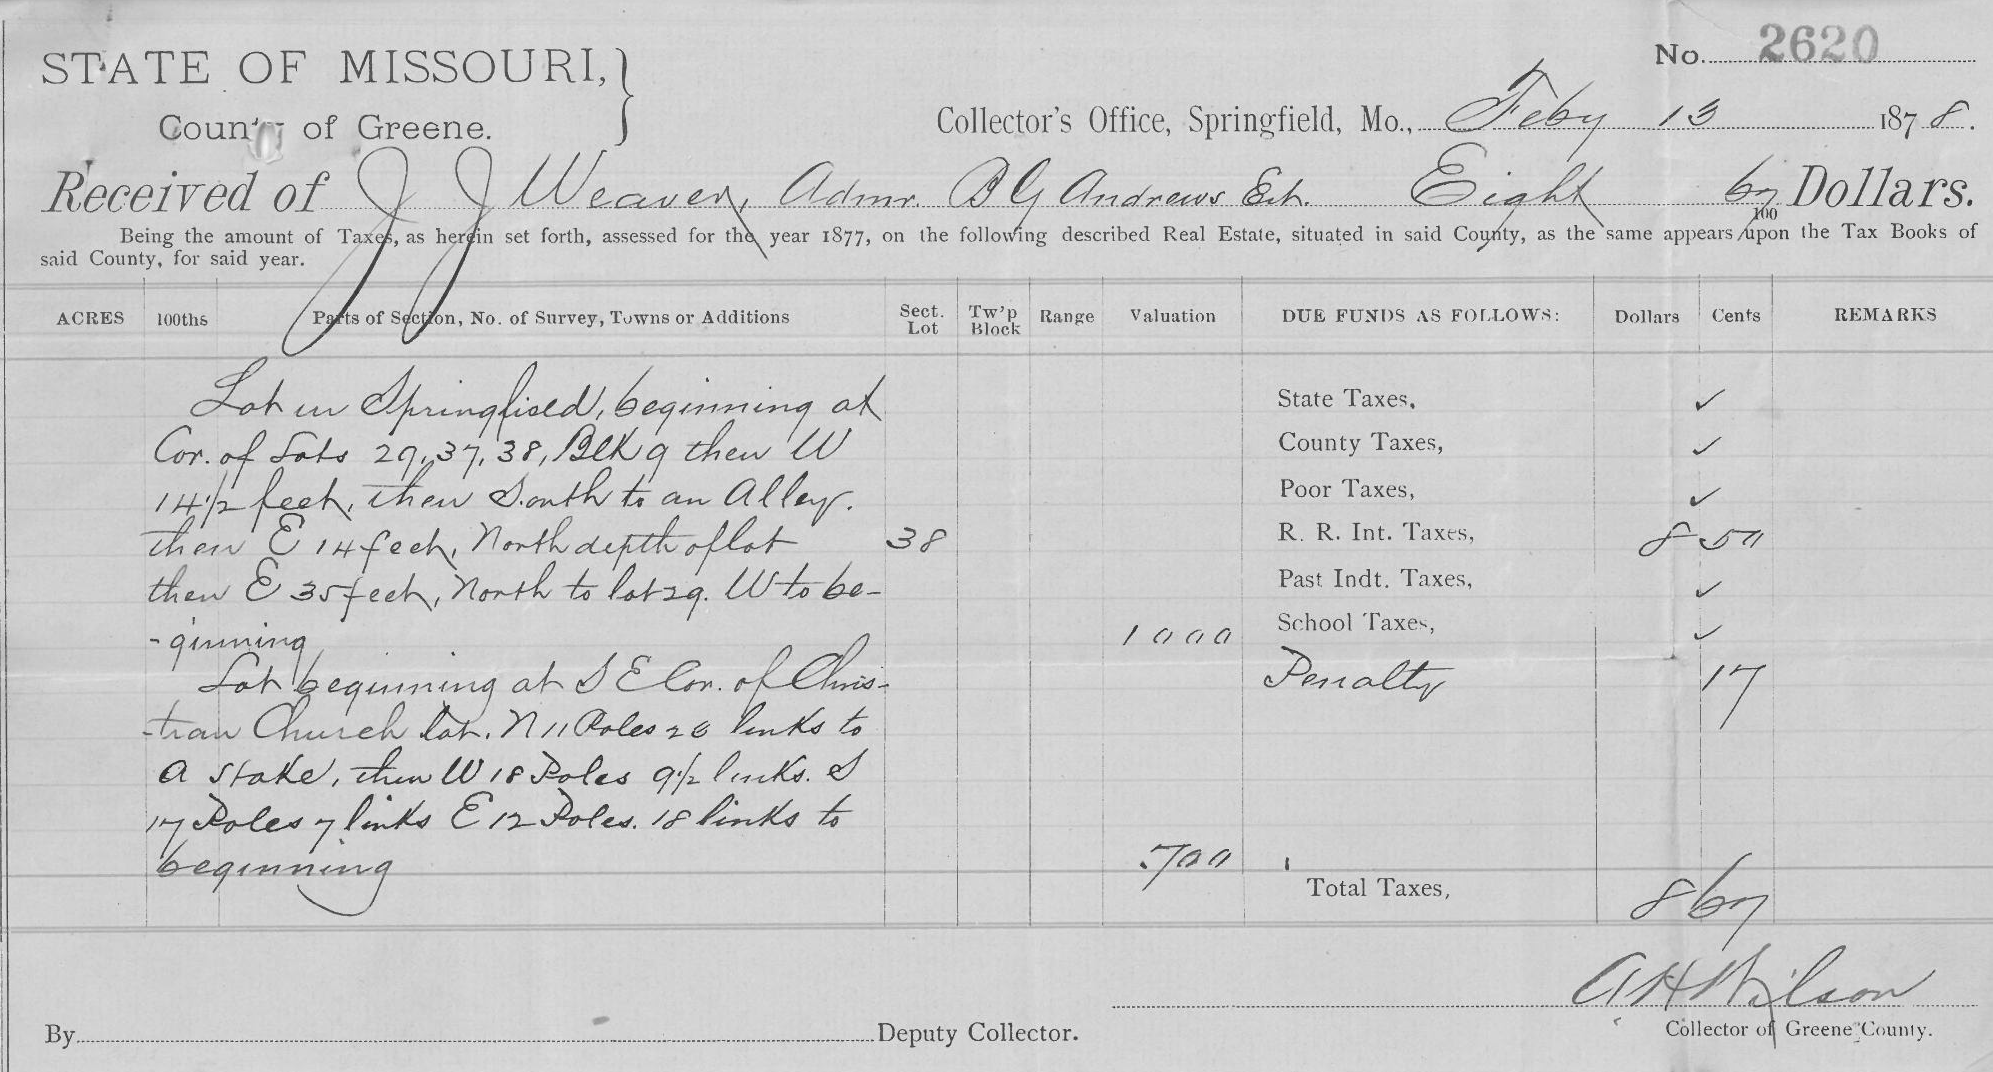 No. 2620
STATE OF MISSOURI,
County of Greene.
Collector's Office, Springfield, Mo., Feby 13 1878.
Received of J J Weaver, Admr. B G Andrews Est. Eight 67/100 Dollars.
Being the amount of Taxes, as herein set forth, assessed for the year 1877, on the following described Real Estate, situated in said County, as the same appears upon the Tax Books of
said County, for said year.
ACRES 100ths Parts of Section, No. of Survey, Towns or Additions Sect. Lot Tw'p Block Range Valuation DUE FUNDS AS FOLLOWS: Dollars Cents REMARKS
Lot in Springfield, beginning at State Taxes, ✓
Cor. of Lots 29, 37, 38, Blk 9 then W County Taxes, ✓
14 1/2 feet, then South to an Alley. Poor Taxes, ✓
then E 14 feet, North depth of lot 38 R. R. Int. Taxes, 8 50
then E 35 feet, North to lot 29. W to be- Past Indt. Taxes, ✓
-ginning 1000 School Taxes, ✓
Lot beginning at S E Cor. of Chris- Penalty 17
-tian Church lot. N 11 Poles 20 links to
a stake, then W 18 Poles 9 1/2 links. S
17 Poles 7 links E 12 Poles. 18 links to
beginning 700 Total Taxes, 8 67
A H Wilson
By Deputy Collector. Collector of Greene County.